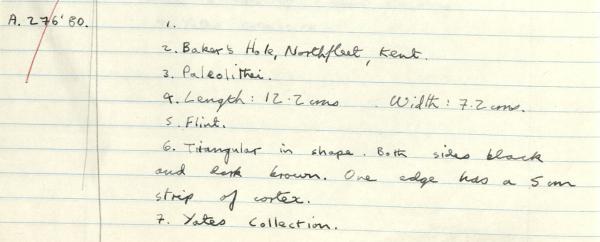 A. 276'80.
1.
2. Baker's Hole, Northfleet, Kent.
3. Paleolithic.
4. Length: 12.2 cms Width: 7.2 cms.
5. Flint.
6. Triangular in shape. Both sides black
and dark brown. One edge has a 5 cm
strip of cortex.
7. Yates Collection.